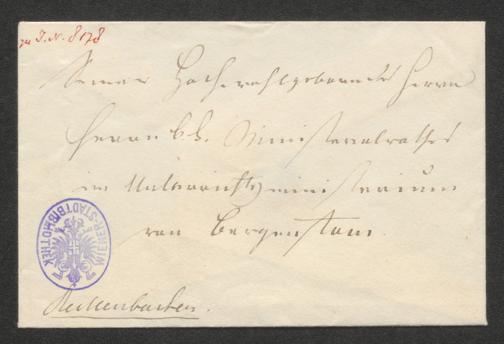 zu J. N. 8178
Seiner Hochwohlgeboren des Herrn
Herrn k. k. Ministerialrathes
im Unterrichtsministerium
von Bergenstam.
WIENER-STADTBIBLIOTHEK